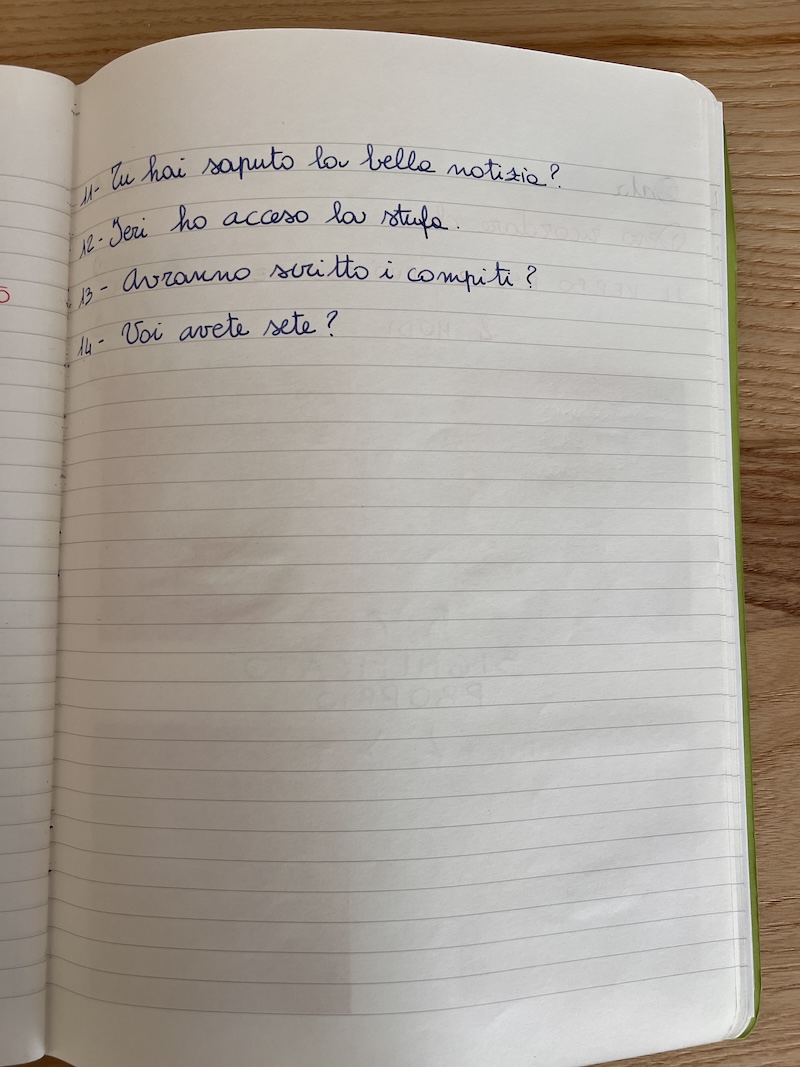 11- Tu hai saputo la bella notizia?
12- Ieri ho acceso la stufa.
13- Avranno scritto i compiti?
14- Voi avete sete?